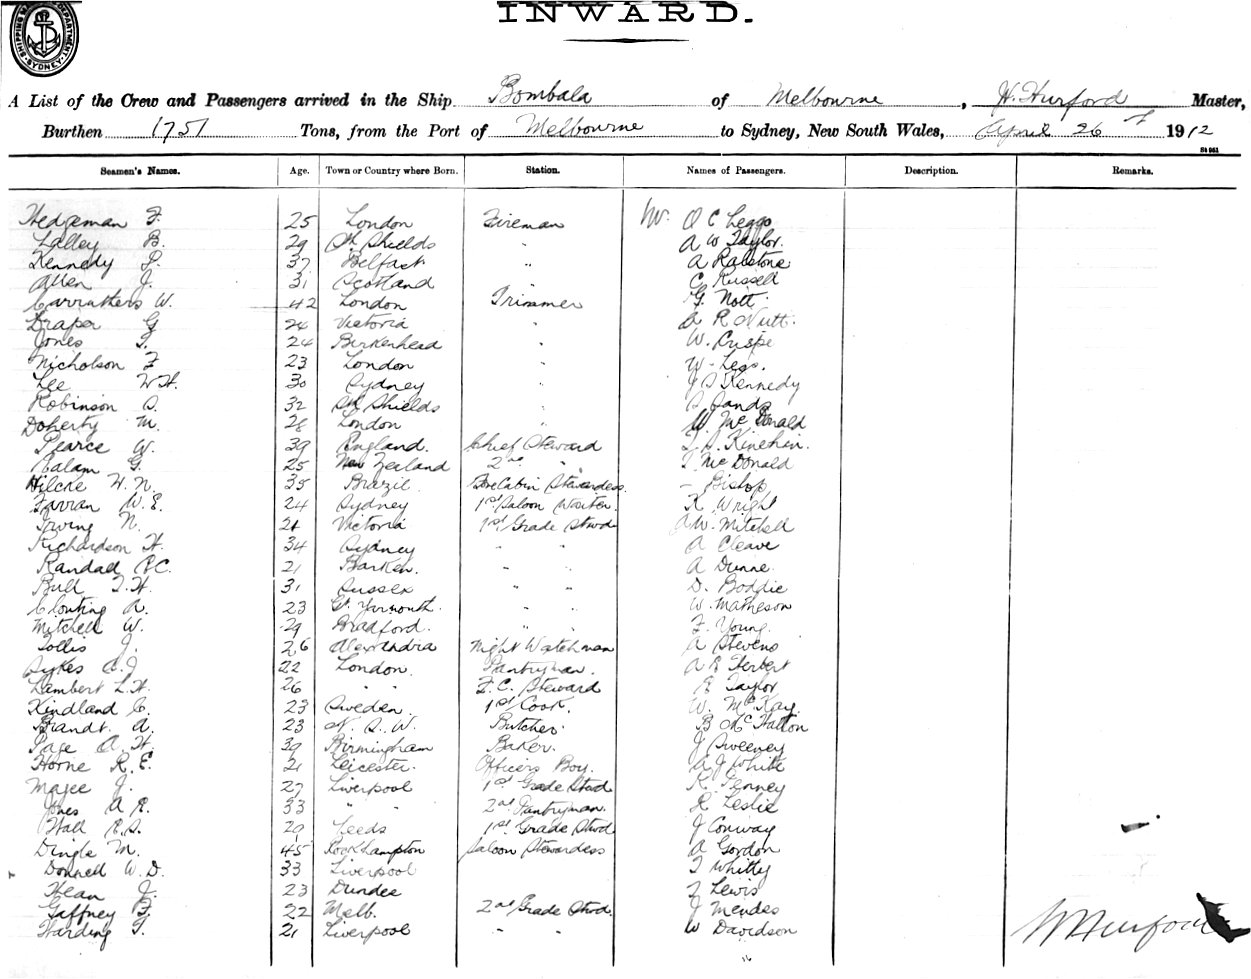 SHIPPING DEPARTMENT SYDNEY
INWARD.
A List of the Crew and Passengers arrived in the Ship Bombala of Melbourne, H. Hurford Master,
Burthen 1751 Tons, from the Port of Melbourne to Sydney, New South Wales, April 26 1912
Seamen's Names. Age. Town or Country where Born. Station. Names of Passengers. Description. Remarks.
Hedgeman F. 25 London Fireman Mr. O C Leggo
Lalley B. 29 Sth Shields " A W Taylor.
Kennedy P. 37 Belfast " A Ralstone
Allen J. 31 Scotland " C Russell
Carruthers W. 42 London Trimmer G. Nott
Draper G 26 Victoria " A R Nutt.
Jones T. 24 Birkenhead " W. Crispe
Nicholson F 23 London " W. Legg.
Lee W H. 30 Sydney " J S Kennedy
Robinson S. 32 Sth Shields " S Sands
Doherty M. 28 London W. McDonald
Pearce W. 39 England. Chief Steward T. S. Kinehin
Calam G. 25 New Zealand 2nd " T McDonald
Hilcke H. N. 35 Brazil Fore Cabin Stewardess - Bishop
Farran W. E. 24 Sydney 1st Saloon Waiter. K Wright
Irving N. 21 Victoria 1st Grade Stwd A W. Mitchell
Richardson H. 34 Sydney " " A Cleave
Randall P. C. 21 Barken. " " A Dunne
Bull T. H. 31 Sussex " " D. Boddie
Clouting A. 23 Gt. Yarmouth. " " W. Matheson
Mitchell W. 29 Bradford. " " F. Young
Sollis J. 26 Alexandria Night Watchman A Stevens
Sykes C. J 22 London. Pantryman. A E Herbert
Lambert L. H. 26 " " F. C. Steward E Taylor
Kindland C. 23 Sweden. 1st Cook. W. McKay.
Brandt. A. 23 N. S. W. Butcher. B McHatton
Page A. H. 39 Birmingham Baker. J Sweeney
Horne R. E. 21 Leicester. Officers Boy. A J White
Magee J. 27 Liverpool 1st Grade Stwd K. Tenney
Jones A R. 33 " " 2nd Pantryman. R Leslie
Hall R. S. 29 Leeds 1st Grade Stwd J Conway
Dingle M. 45 Rockhampton Saloon Stewardess A Gordon
Donnell W. D. 33 Liverpool T Whitty
Hean J. 23 Dundee F Lewis
Gaffney F. 22 Melb. 2nd Grade Stwd. J Mendes
Harding T. 21 Liverpool " " W Davidson
H Hurford